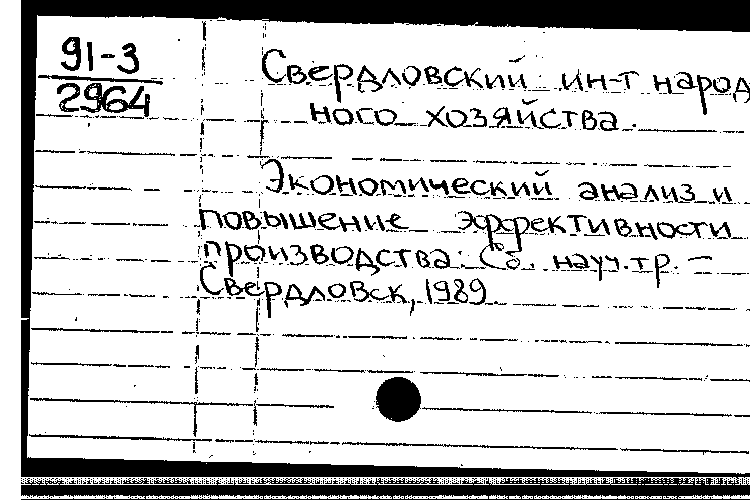 91-3
2964
Свердловский ин-т народ
ного хозяйства.
Экономический анализ и
повышение эффективности
производства: Сб. науч. тр. –
Свердловск, 1989.